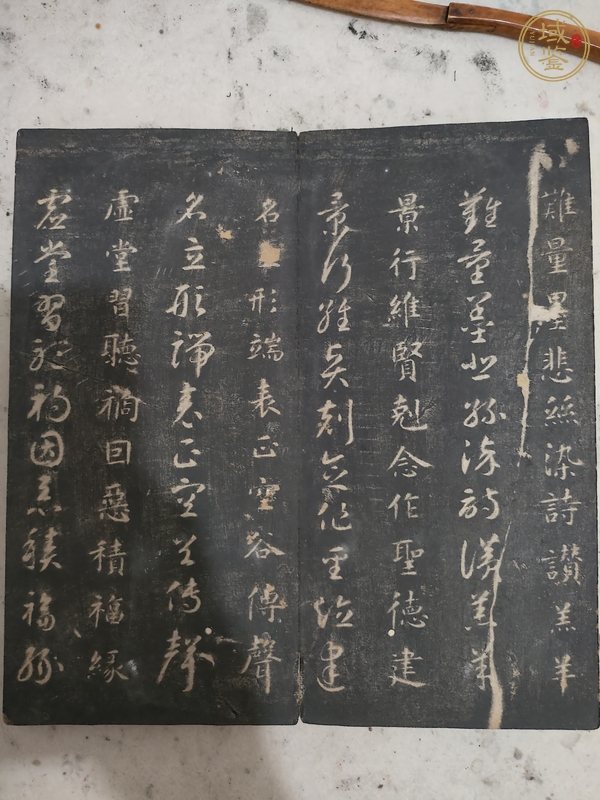 難量墨悲絲染詩讚羔羊
難量墨悲絲染詩讚羔羊
景行維賢剋念作聖德建
景行維賢剋念作聖德建
名形端表正空谷傳聲
名立形端表正空谷傳聲
虛堂習聽禍因惡積福緣
虛堂習聽禍因惡積福緣
域鉴